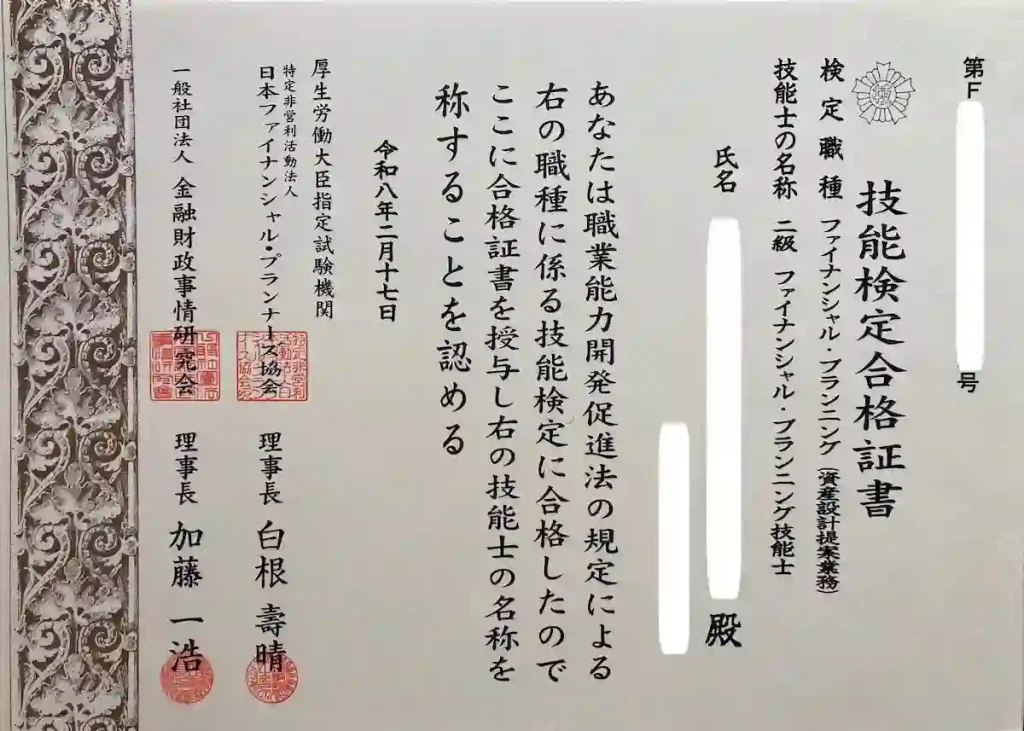 第F
号
技能検定合格証書
検定職種 ファイナンシャル・プランニング(資産設計提案業務)
技能士の名称 二級 ファイナンシャル・プランニング技能士
氏名
殿
あなたは職業能力開発促進法の規定による
右の職種に係る技能検定に合格したので
ここに合格証書を授与し右の技能士の名称を
称することを認める
令和八年二月十七日
厚生労働大臣指定試験機関
特定非営利活動法人
日本ファイナンシャル・プランナーズ協会 理事長 白根 壽晴
一般社団法人 金融財政事情研究会 理事長 加藤 一浩